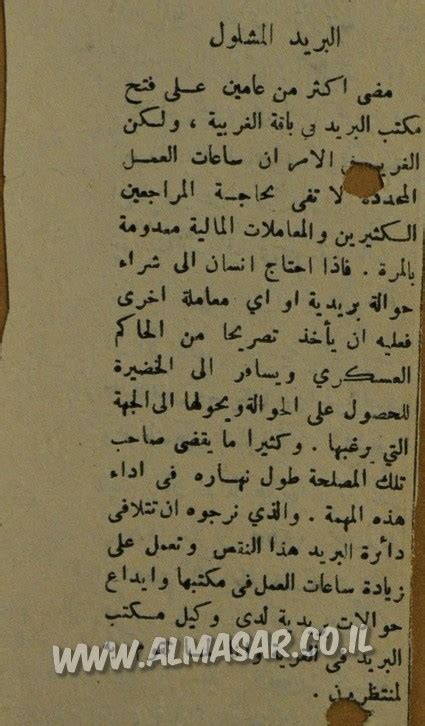 البريد المشلول
مضى اكثر من عامين على فتح
مكتب البريد في باقة الغربية ، ولكن
الغريب في الامر ان ساعات العمل
المحددة لا تفى بحاجة المراجعين
الكثيرين والمعاملات المالية معدومة
بالمرة . فاذا احتاج انسان الى شراء
حوالة بريدية او اي معاملة اخرى
فعليه ان يأخذ تصريحا من الحاكم
العسكري ويسافر الى الخضيرة
للحصول على الحوالة ويحولها الى الجهة
التي يرغبها . وكثيرا ما يقضى صاحب
تلك المصلحة طول نهاره فى اداء
هذه المهمة . والذي نرجوه ان تتلافى
دائرة البريد هذا النقص وتعمل على
زيادة ساعات العمل فى مكتبها وايداع
حوالات بريدية لدى وكيل مكتب
البريد فى القرية
WWW.ALMASAR.CO.IL
لمنتظرون .